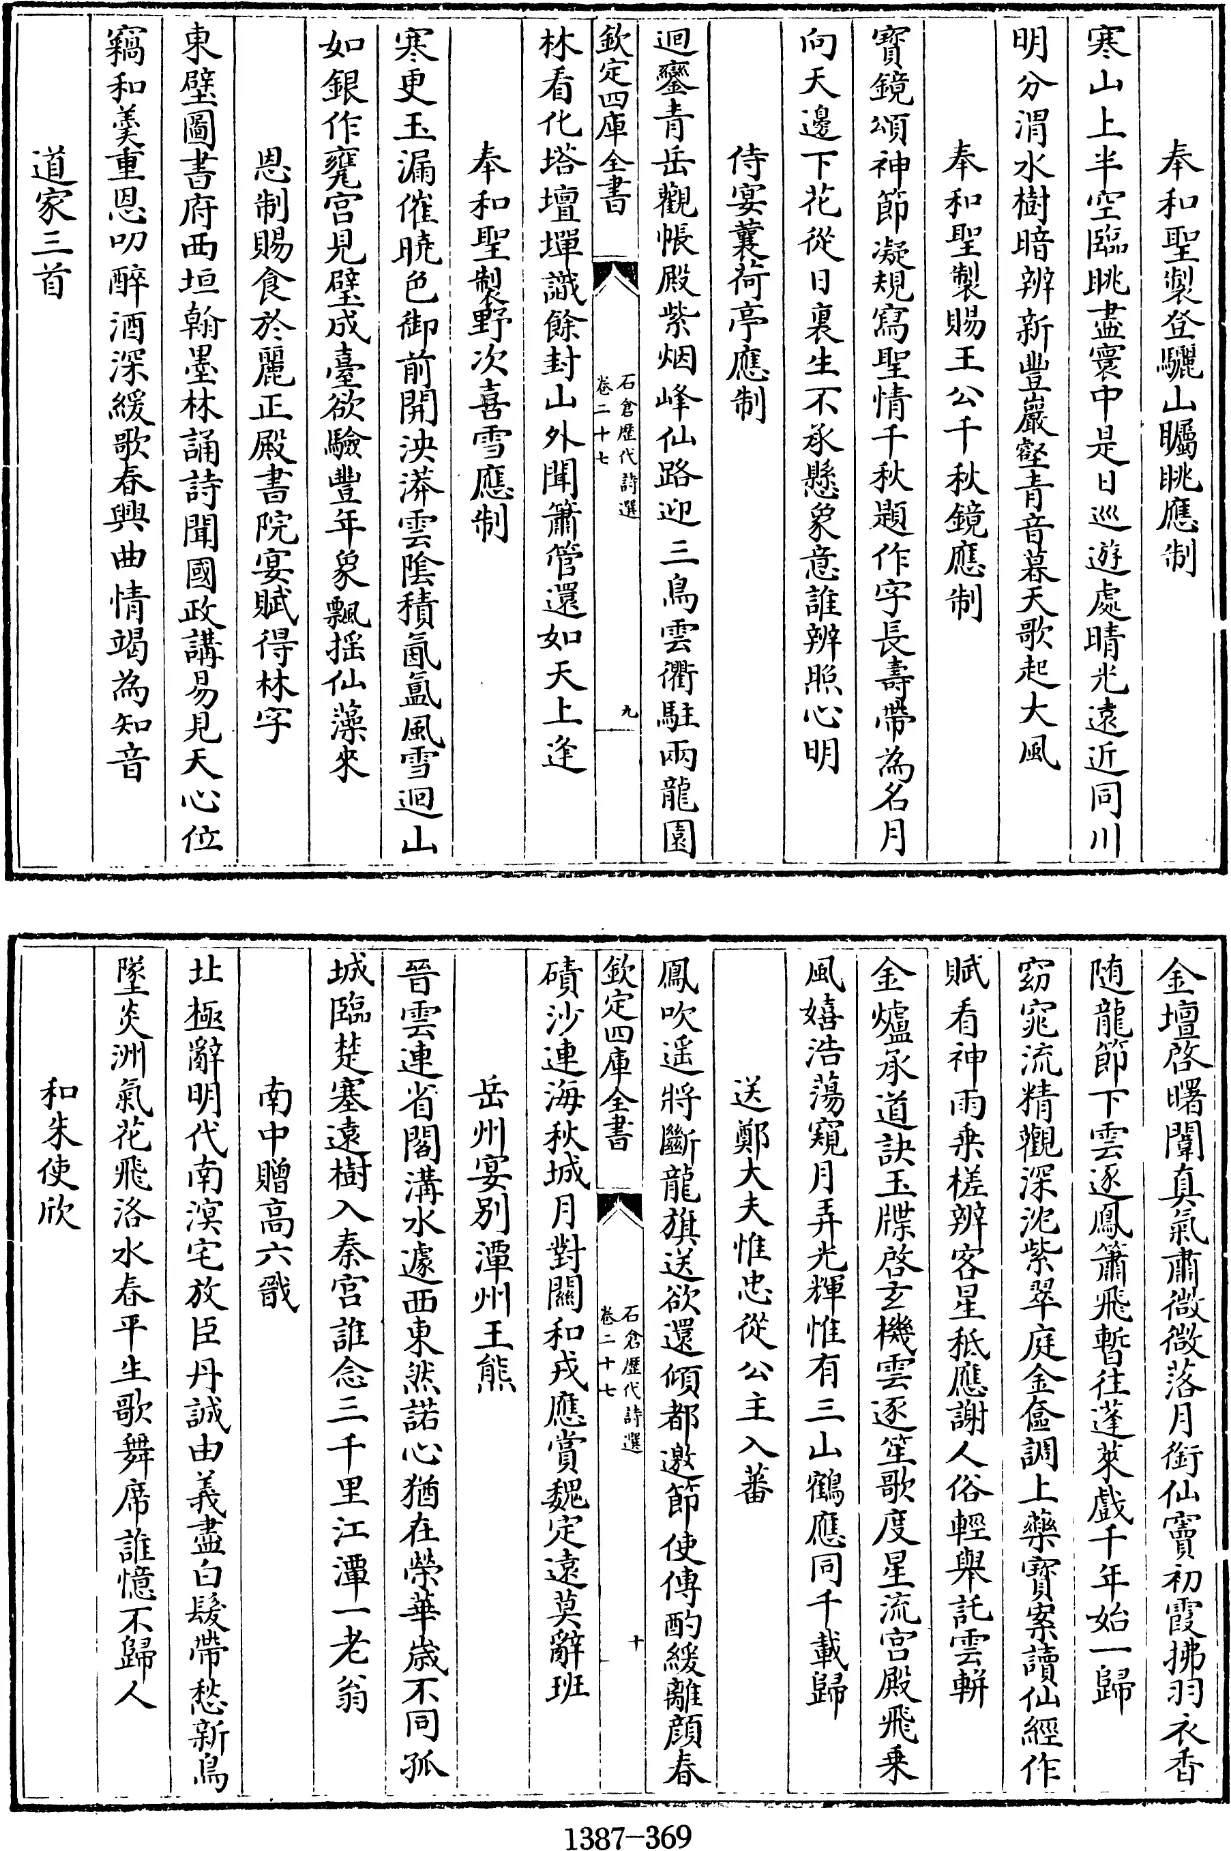 奉和聖製登驪山矚眺應制
寒山上半空臨眺盡寰中是日巡遊處晴光遠近同川
明分渭水樹暗辨新豐巖壑青音暮天歌起大風
奉和聖製賜王公千秋鏡應制
寶鏡頌神節凝規寫聖情千秋題作字長壽帶為名月
向天邊下花從日裏生不承懸象意誰辨照心明
侍宴蘘荷亭應制
迴鑾青岳觀帳殿紫烟峰仙路迎三鳥雲衢駐兩龍園
欽定四庫全書
石倉歴代詩選
卷二十七
九
林看化塔壇墠識餘封山外聞簫管還如天上逢
奉和聖製野次喜雪應制
寒更玉漏催曉色御前開泱漭雲陰積氤氳風雪迴山
如銀作甕宮見璧成臺欲驗豐年象飄摇仙藻來
恩制賜食於麗正殿書院宴賦得林字
東壁圖書府西垣翰墨林誦詩聞國政講易見天心位
竊和羹重恩叨醉酒深緩歌春興曲情竭為知音
道家三首
金壇啓曙闈真氣肅微微落月銜仙竇初霞拂羽衣香
隨龍節下雲逐鳳簫飛暫往蓬萊戲千年始一歸
窈窕流精觀深沈紫翠庭金奩調上藥寶案讀仙經作
賦看神雨乘槎辨客星秪應謝人俗輕舉託雲軿
金爐承道訣玉牒啓玄機雲逐笙歌度星流宫殿飛乘
風嬉浩蕩窺月弄光輝惟有三山鶴應同千載歸
送鄭大夫惟忠從公主入蕃
鳳吹遥將斷龍旗送欲還傾都邀節使傳酌緩離顔春
欽定四庫全書
石倉歴代詩選
卷二十七
十
磧沙連海秋城月對關和戎應賞魏定遠莫辭班
岳州宴别潭州王熊
晉雲連省閣溝水遽西東然諾心猶在榮華歲不同孤
城臨楚塞遠樹入秦宫誰念三千里江潭一老翁
南中贈高六戩
北極辭明代南溟宅放臣丹誠由義盡白髮帶愁新鳥
墜炎洲氣花飛洛水春平生歌舞席誰憶不歸人
和朱使欣
1387-369